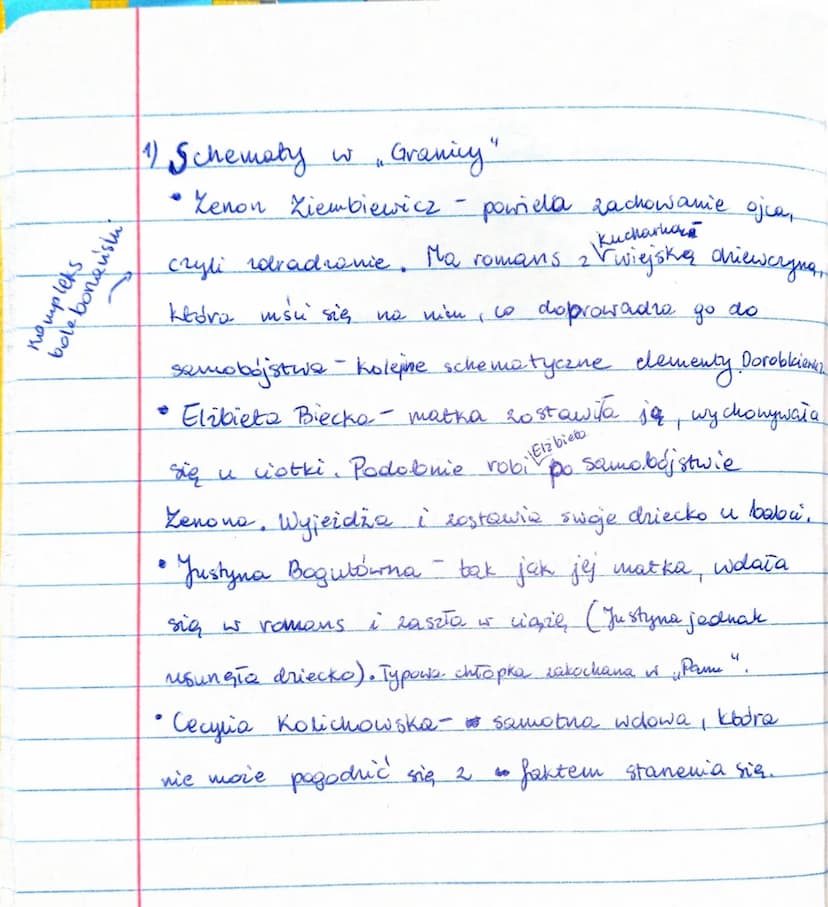 1) Schematy w „Granicy"
• Zenon Ziembiewicz – powiela zachowanie ojca,
czyli zdradzanie. Ma romans z wiejską dziewczyną,
kucharką
która mści się na nim, co doprowadza go do
samobójstwa – kolejne schematyczne elementy. Dorobkiewicz
kompleks
boleborzański.
• Elżbieta Biecka – matka zostawiła ją, wychowywała
się u ciotki. Podobnie robi po samobójstwie
Elżbieta
Zenona. Wyjeżdża i zostawia swoje dziecko u babci.
• Justyna Bogutówna – tak jak jej matka, wdała
się w romans i zaszła w ciążę (Justyna jednak
usunęła dziecko). Typowa chłopka zakochana w „Panu".
• Cecylia Kolichowska – samotna wdowa, która
nie może pogodzić się z faktem starzenia się.